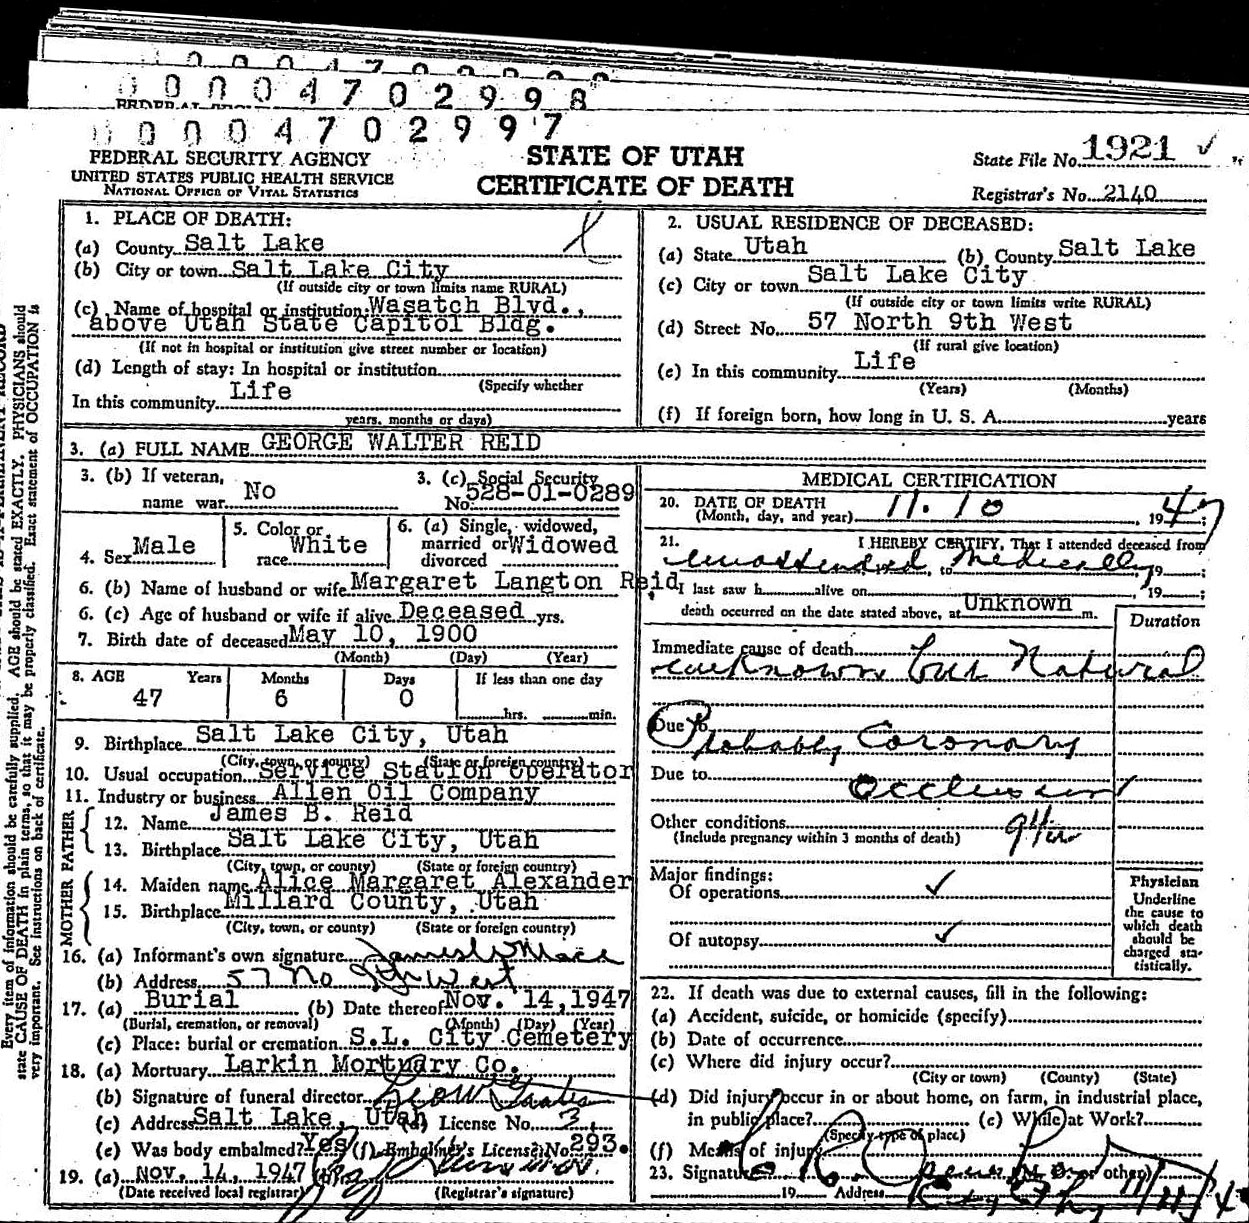 0000470299 8
0000470299 7
FEDERAL SECURITY AGENCY
UNITED STATES PUBLIC HEALTH SERVICE
NATIONAL OFFICE OF VITAL STATISTICS
STATE OF UTAH
CERTIFICATE OF DEATH
State File No. 1921 ✓
Registrar's No. 2140
1. PLACE OF DEATH:
(a) County Salt Lake
(b) City or town Salt Lake City
(If outside city or town limits name RURAL)
(c) Name of hospital or institution: Wasatch Blvd.,
above Utah State Capitol Bldg.
(If not in hospital or institution give street number or location)
(d) Length of stay: In hospital or institution
(Specify whether
In this community Life
years, months or days)
2. USUAL RESIDENCE OF DECEASED:
(a) State Utah (b) County Salt Lake
(c) City or town Salt Lake City
(If outside city or town limits write RURAL)
(d) Street No. 57 North 9th West
(If rural give location)
(e) In this community Life
(Years) (Months)
(f) If foreign born, how long in U. S. A. years
3. (a) FULL NAME GEORGE WALTER REID
3. (b) If veteran,
name war No
3. (c) Social Security
No. 528-01-0289
4. Sex Male
5. Color or
race White
6. (a) Single, widowed,
married or Widowed
divorced
6. (b) Name of husband or wife Margaret Langton Reid
6. (c) Age of husband or wife if alive Deceased yrs.
7. Birth date of deceased May 10, 1900
(Month) (Day) (Year)
8. AGE Years Months Days If less than one day
47 6 0 hrs. min.
9. Birthplace Salt Lake City, Utah
(City, town, or county) (State or foreign country)
10. Usual occupation Service Station Operator
11. Industry or business Allen Oil Company
FATHER
12. Name James B. Reid
13. Birthplace Salt Lake City, Utah
(City, town, or county) (State or foreign country)
MOTHER
14. Maiden name Alice Margaret Alexander
15. Birthplace Millard County, Utah
(City, town, or county) (State or foreign country)
16. (a) Informant's own signature
(b) Address 57 No 9th West
17. (a) Burial (b) Date thereof Nov. 14, 1947
(Burial, cremation, or removal) (Month) (Day) (Year)
(c) Place: burial or cremation S.L. City Cemetery
18. (a) Mortuary Larkin Mortuary Co.
(b) Signature of funeral director
(c) Address Salt Lake, Utah (d) License No. 3,
(e) Was body embalmed? Yes (f) Embalmer's License No. 293.
19. (a) NOV. 14, 1947 (b)
(Date received local registrar) (Registrar's signature)
MEDICAL CERTIFICATION
20. DATE OF DEATH
(Month, day, and year) 11. 10, 1947;
21. I HEREBY CERTIFY, That I attended deceased from
unattended, to Medically, 19 ;
I last saw h alive on , 19 ;
death occurred on the date stated above, at Unknown m.
Duration
Immediate cause of death
unknown but Natural
Due to
Probably Coronary
Due to
Occlusion
Other conditions
(Include pregnancy within 3 months of death)
Major findings:
Of operations ✓
Of autopsy ✓
Physician
Underline
the cause to
which death
should be
charged sta-
tistically.
22. If death was due to external causes, fill in the following:
(a) Accident, suicide, or homicide (specify)
(b) Date of occurrence
(c) Where did injury occur?
(City or town) (County) (State)
(d) Did injury occur in or about home, on farm, in industrial place,
in public place? (e) While at Work?
(Specify type of place)
(f) Means of injury
23. Signature (M. D. or other)
19 Address
Every item of information should be carefully supplied. AGE should be stated EXACTLY. PHYSICIANS should
state CAUSE OF DEATH in plain terms, so that it may be properly classified. Exact statement of OCCUPATION is
very important. See instructions on back of certificate.